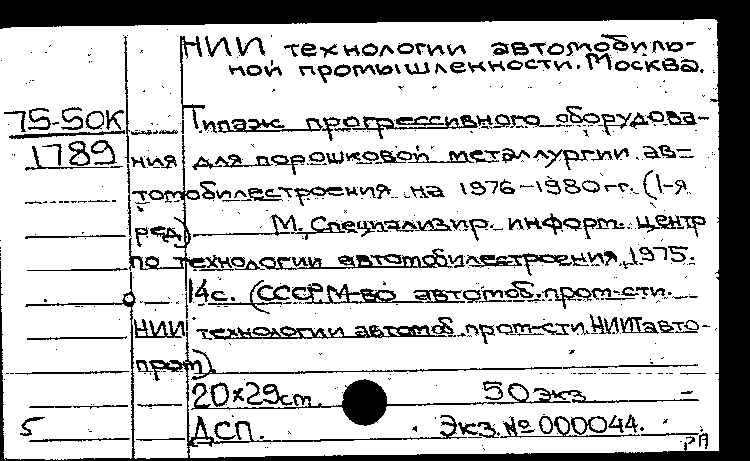 НИИ технологии автомобиль-
ной промышленности. Москва.
75-50К Типаж прогрессивного оборудова-
1789 ния для порошковой металлургии ав=
томобилестроения на 1976-1980гг. (1-я
ред) М. Специализир. информ. центр
по технологии автомобилестроения, 1975.
14с. (СССР М-во автомоб. пром-сти.
НИИ технологии автомоб пром-сти НИИТавто-
пром).
20×29cm. 50 экз -
5 ДСП. Экз. № 000044.
РП